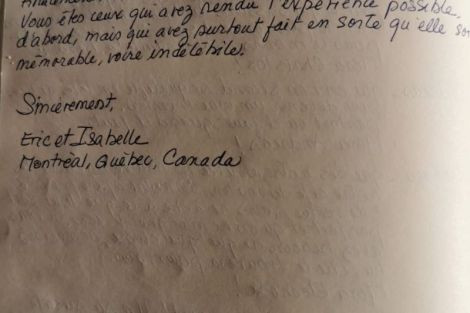 Vous êtes ceux qui avez rendu l'expérience possible,
d'abord, mais qui avez surtout fait en sorte qu'elle
mémorable, voire indélébile.
Sincèrement,
Eric et Isabelle
Montréal, Québec, Canada